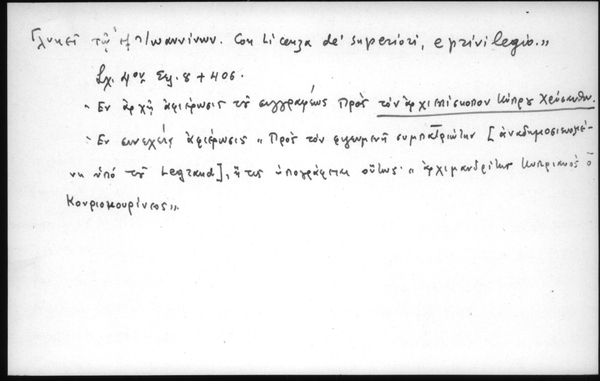 Γλυκεῖ τῷ ἐξ Ἰωαννίνων. Con Licenza de' superiori, e privilegio.»
Σχ. 4ον Σελ. 8 + 406.
- Ἐν ἀρχῇ ἀφιέρωσις τοῦ συγγραφέως Πρὸς τὸν ἀρχιεπίσκοπον Κύπρου Χρύσανθον.
- Ἐν συνεχείᾳ ἀφιέρωσις «Πρὸς τὸν φιλογενῆ συμπατριώτην [ἀναδημοσιευομέ-
νη ὑπὸ τοῦ Legrand], ἥτις ὑπογράφεται οὕτως· «ἀρχιμανδρίτης Κυπριανὸς ὁ
Κουριοκουρίνεος».